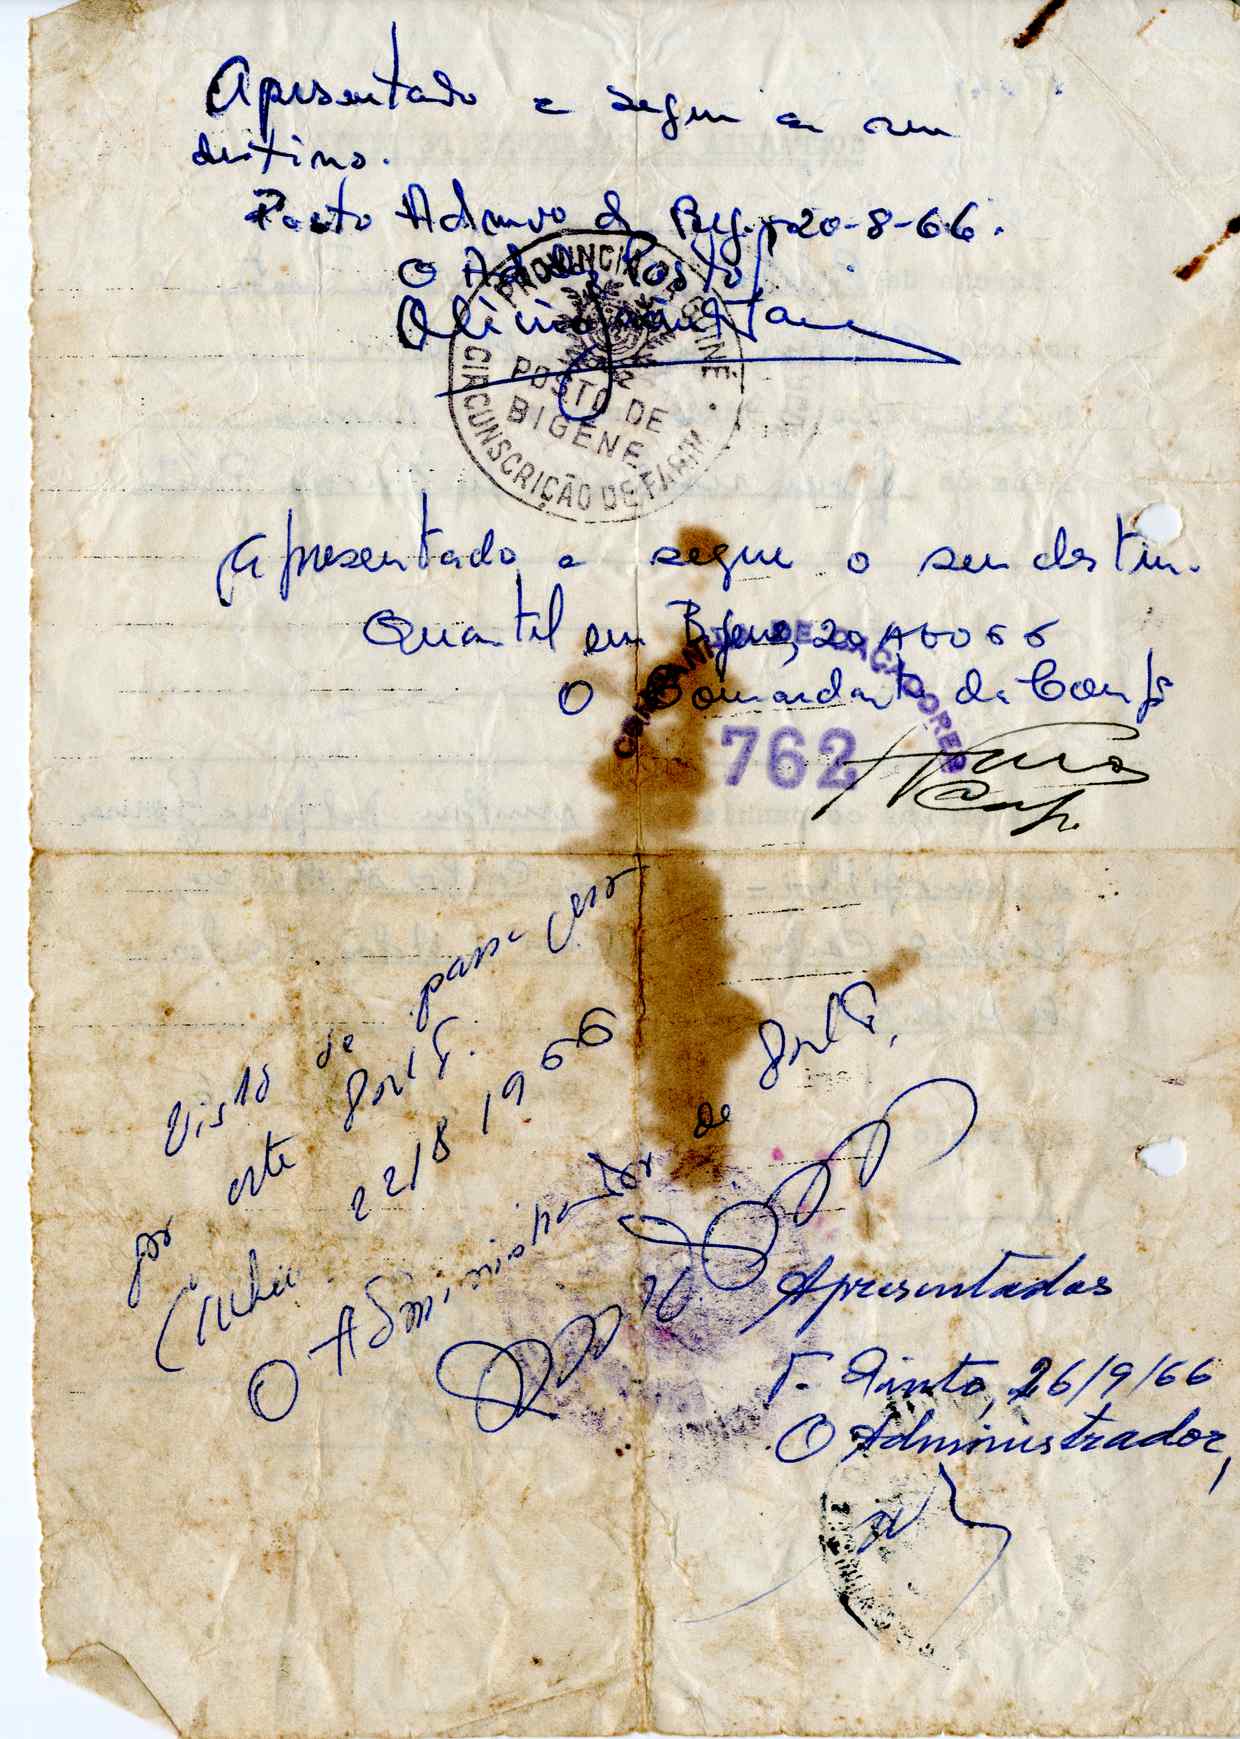 Apresentado e segue a seu
destino.
Posto Admvo de 20-8-66.
O Posto
PROVINCIA DA GUINE
POSTO DE
BIGENE
CIRCUNSCRIÇÃO DE FARIM
Apresentado e segue o seu destin.
Quartel em Bigene, 20 AGO 66
O Comandante da Comp
COMPANHIA DE CAÇADORES
762
Visto de passa
por este Posto.
22/8/1966
O Administrador de Posto,
Apresentados
T. Pinto, 26/9/66
O Administrador,